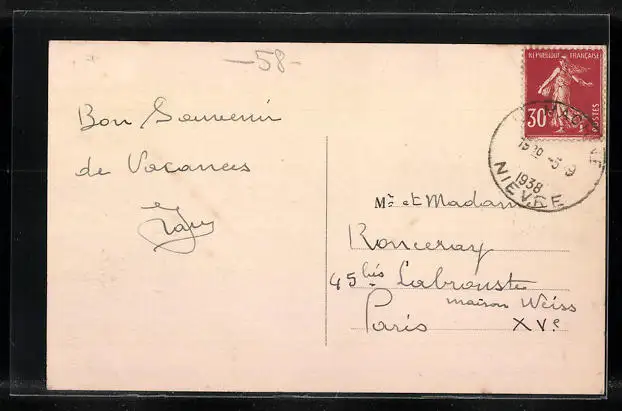 -58-
Bon Souvenir
de Vacances
REPUBLIQUE FRANÇAISE
30c
POSTES
15 30 -5-9
1938
NIEVRE
Mr et Madame
Ronceray
45 bis Labrouste
maison Weiss
Paris XVe